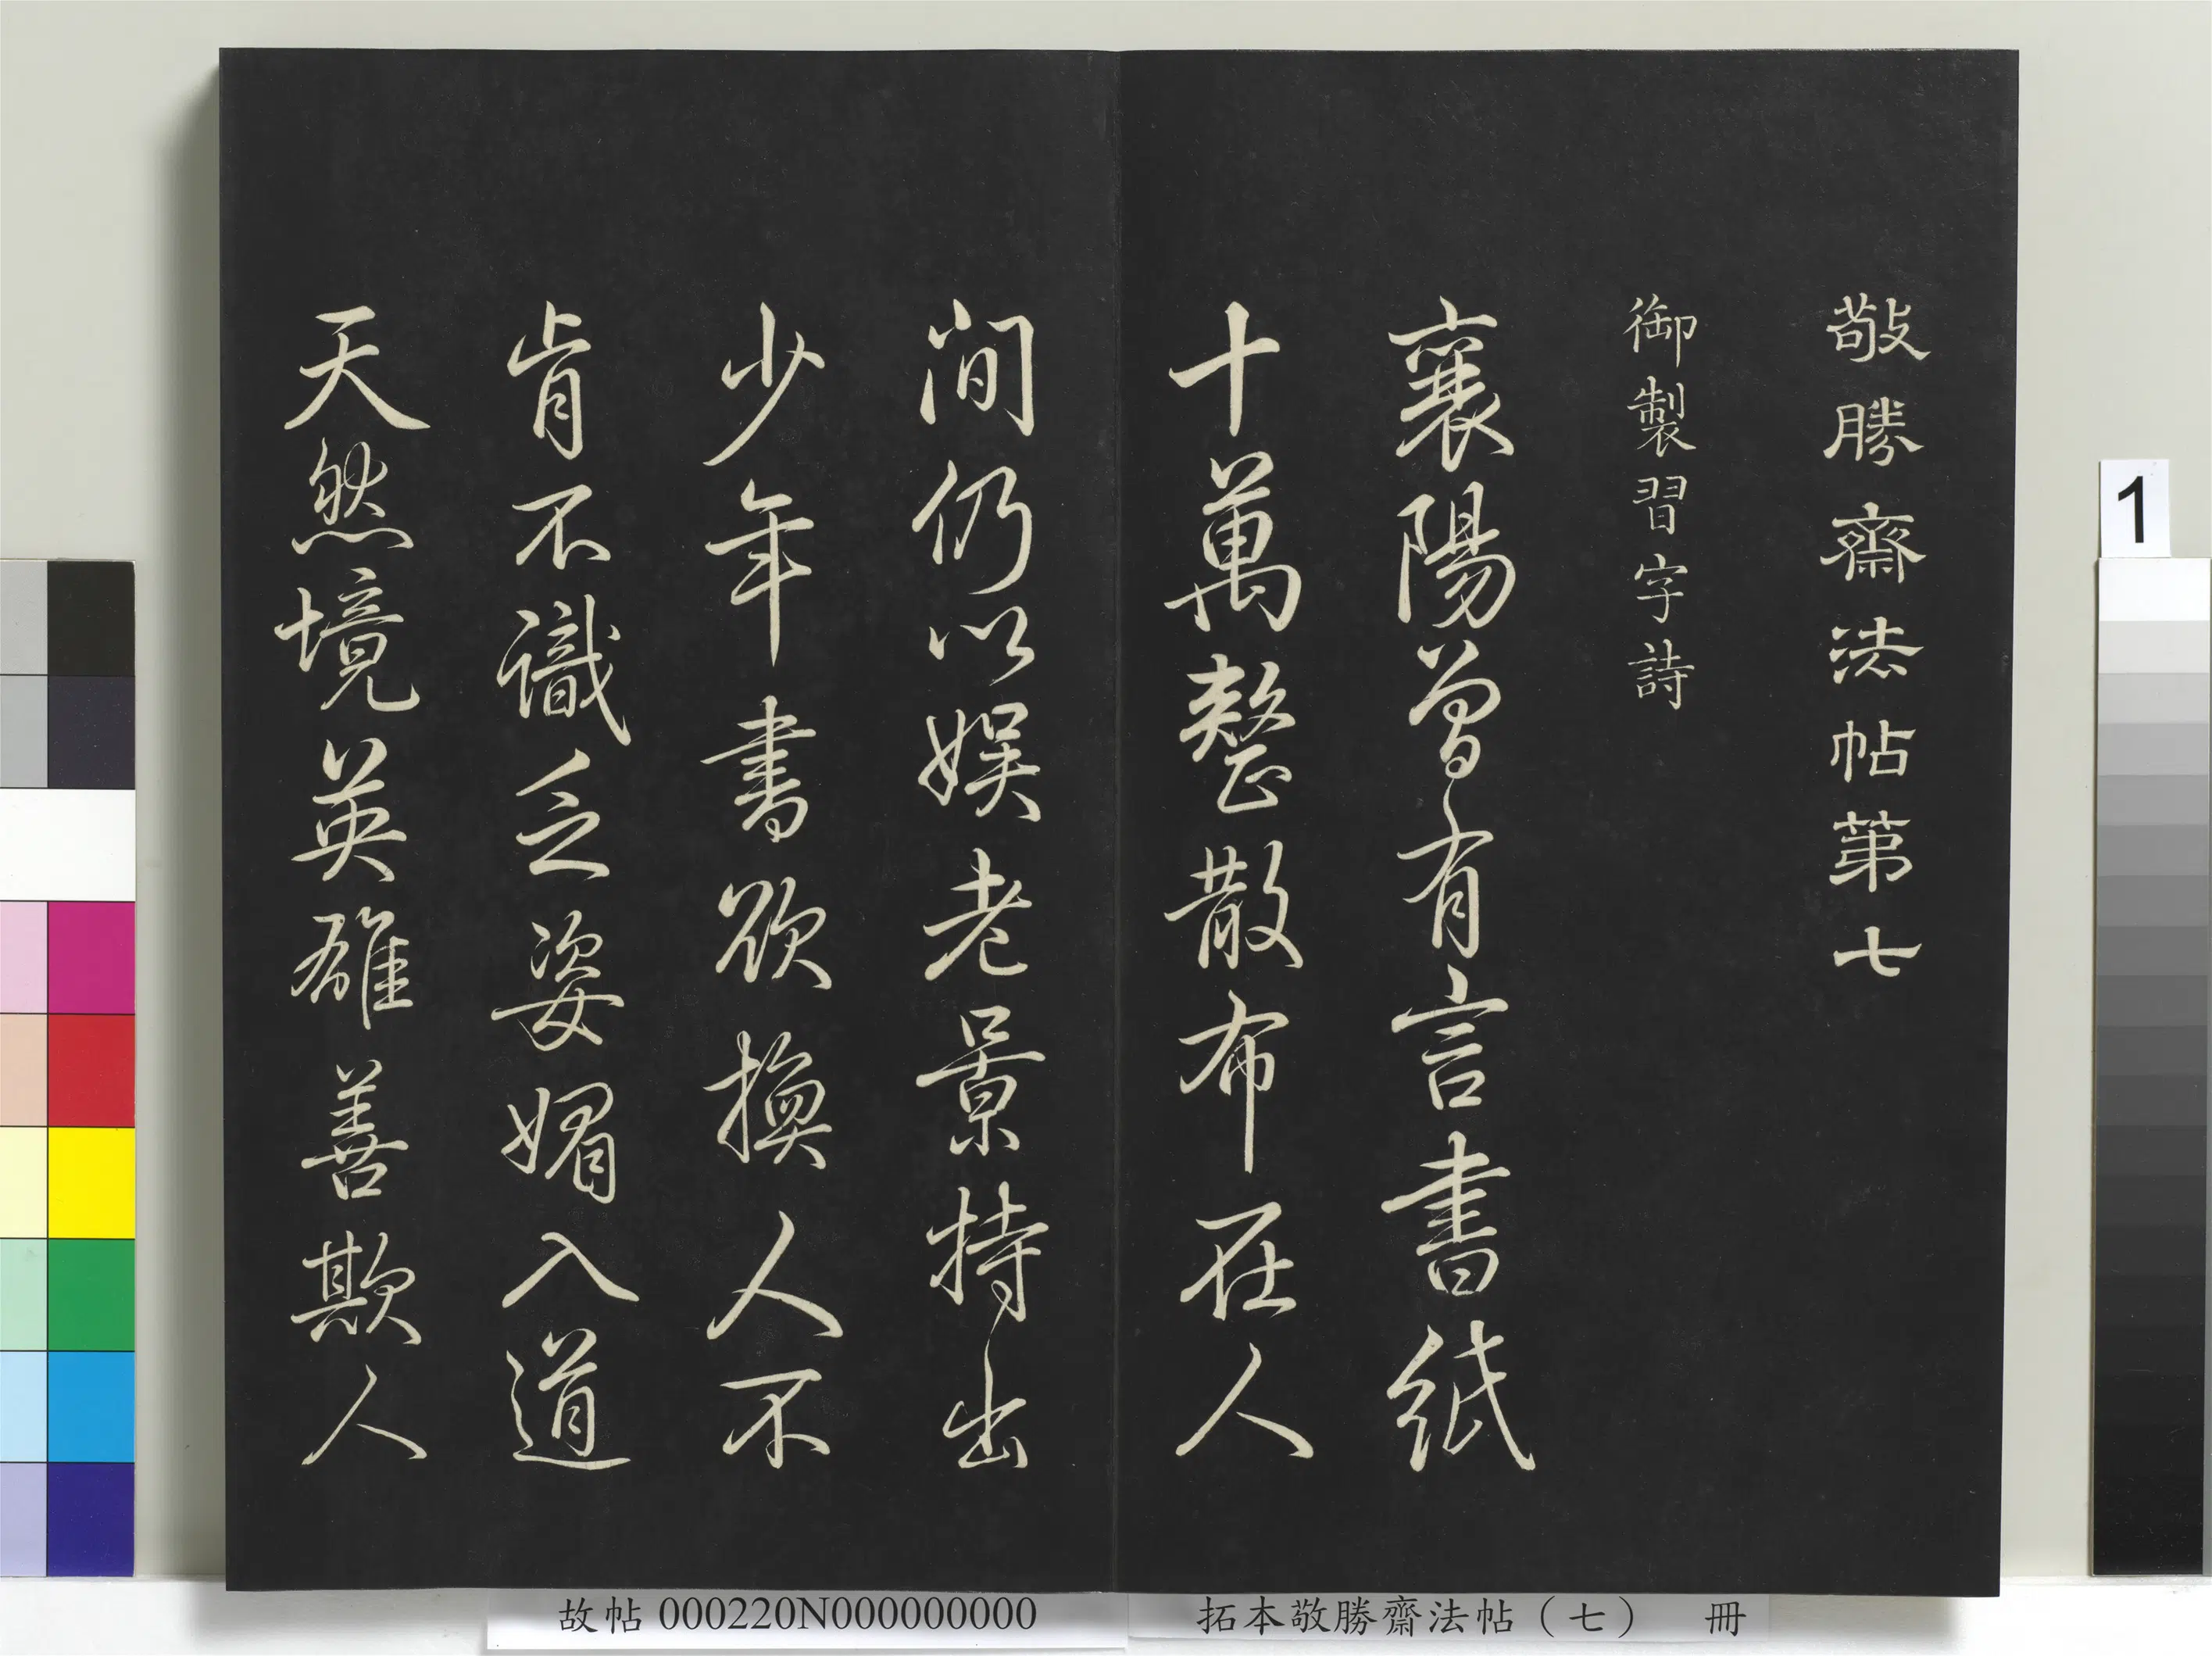 敬勝齋法帖第七
御製習字詩
襄陽曾有言書紙
十萬整散布在人
間仍以娱老景持出
少年書欲換人不
肯不識乏姿媚入道
天然境英雄善欺人
1
故帖 000220N000000000
拓本敬勝齋法帖（七） 冊